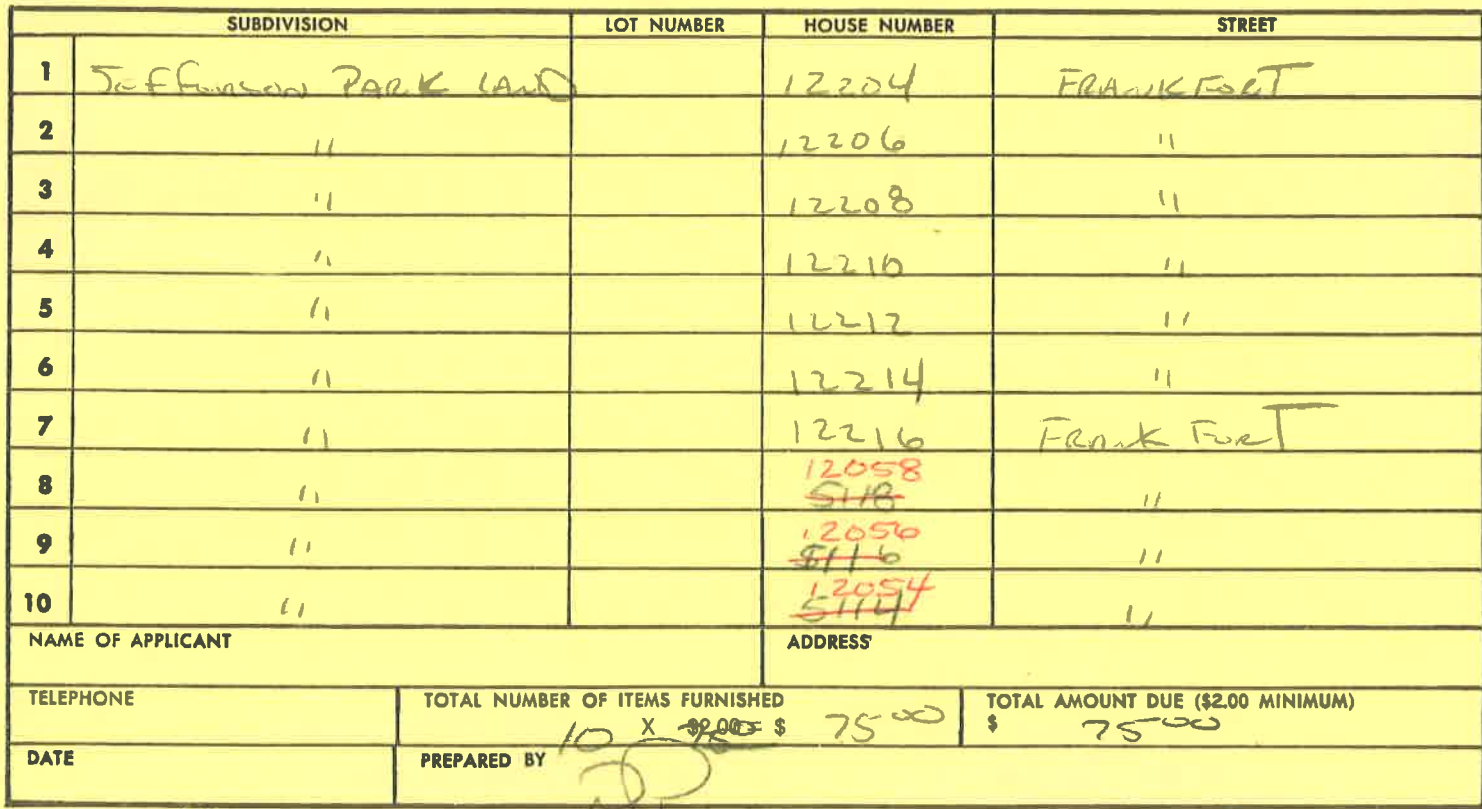 SUBDIVISION LOT NUMBER HOUSE NUMBER STREET
1 Jefferson PARK LAND 12204 FRANKFORT
2 " 12206 "
3 " 12208 "
4 " 12210 "
5 " 12212 "
6 " 12214 "
7 " 12216 FRANK FORT
12058
8 " 5118 "
12056
9 " 5116 "
12054
10 " 5114 "
NAME OF APPLICANT ADDRESS
TELEPHONE TOTAL NUMBER OF ITEMS FURNISHED TOTAL AMOUNT DUE ($2.00 MINIMUM)
10 X $2.00 = $ 75 00 $ 75 00
DATE PREPARED BY